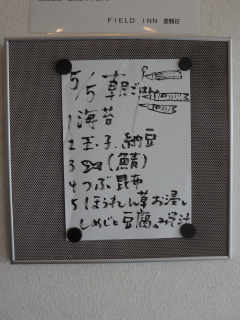 FIELD INN 星麓荘
5/5 朝ごはん
1 海苔
2 玉子、納豆
3 (鯖)
4 つぶ昆布
5 ほうれん草お浸し
しめじと豆腐のみそ汁